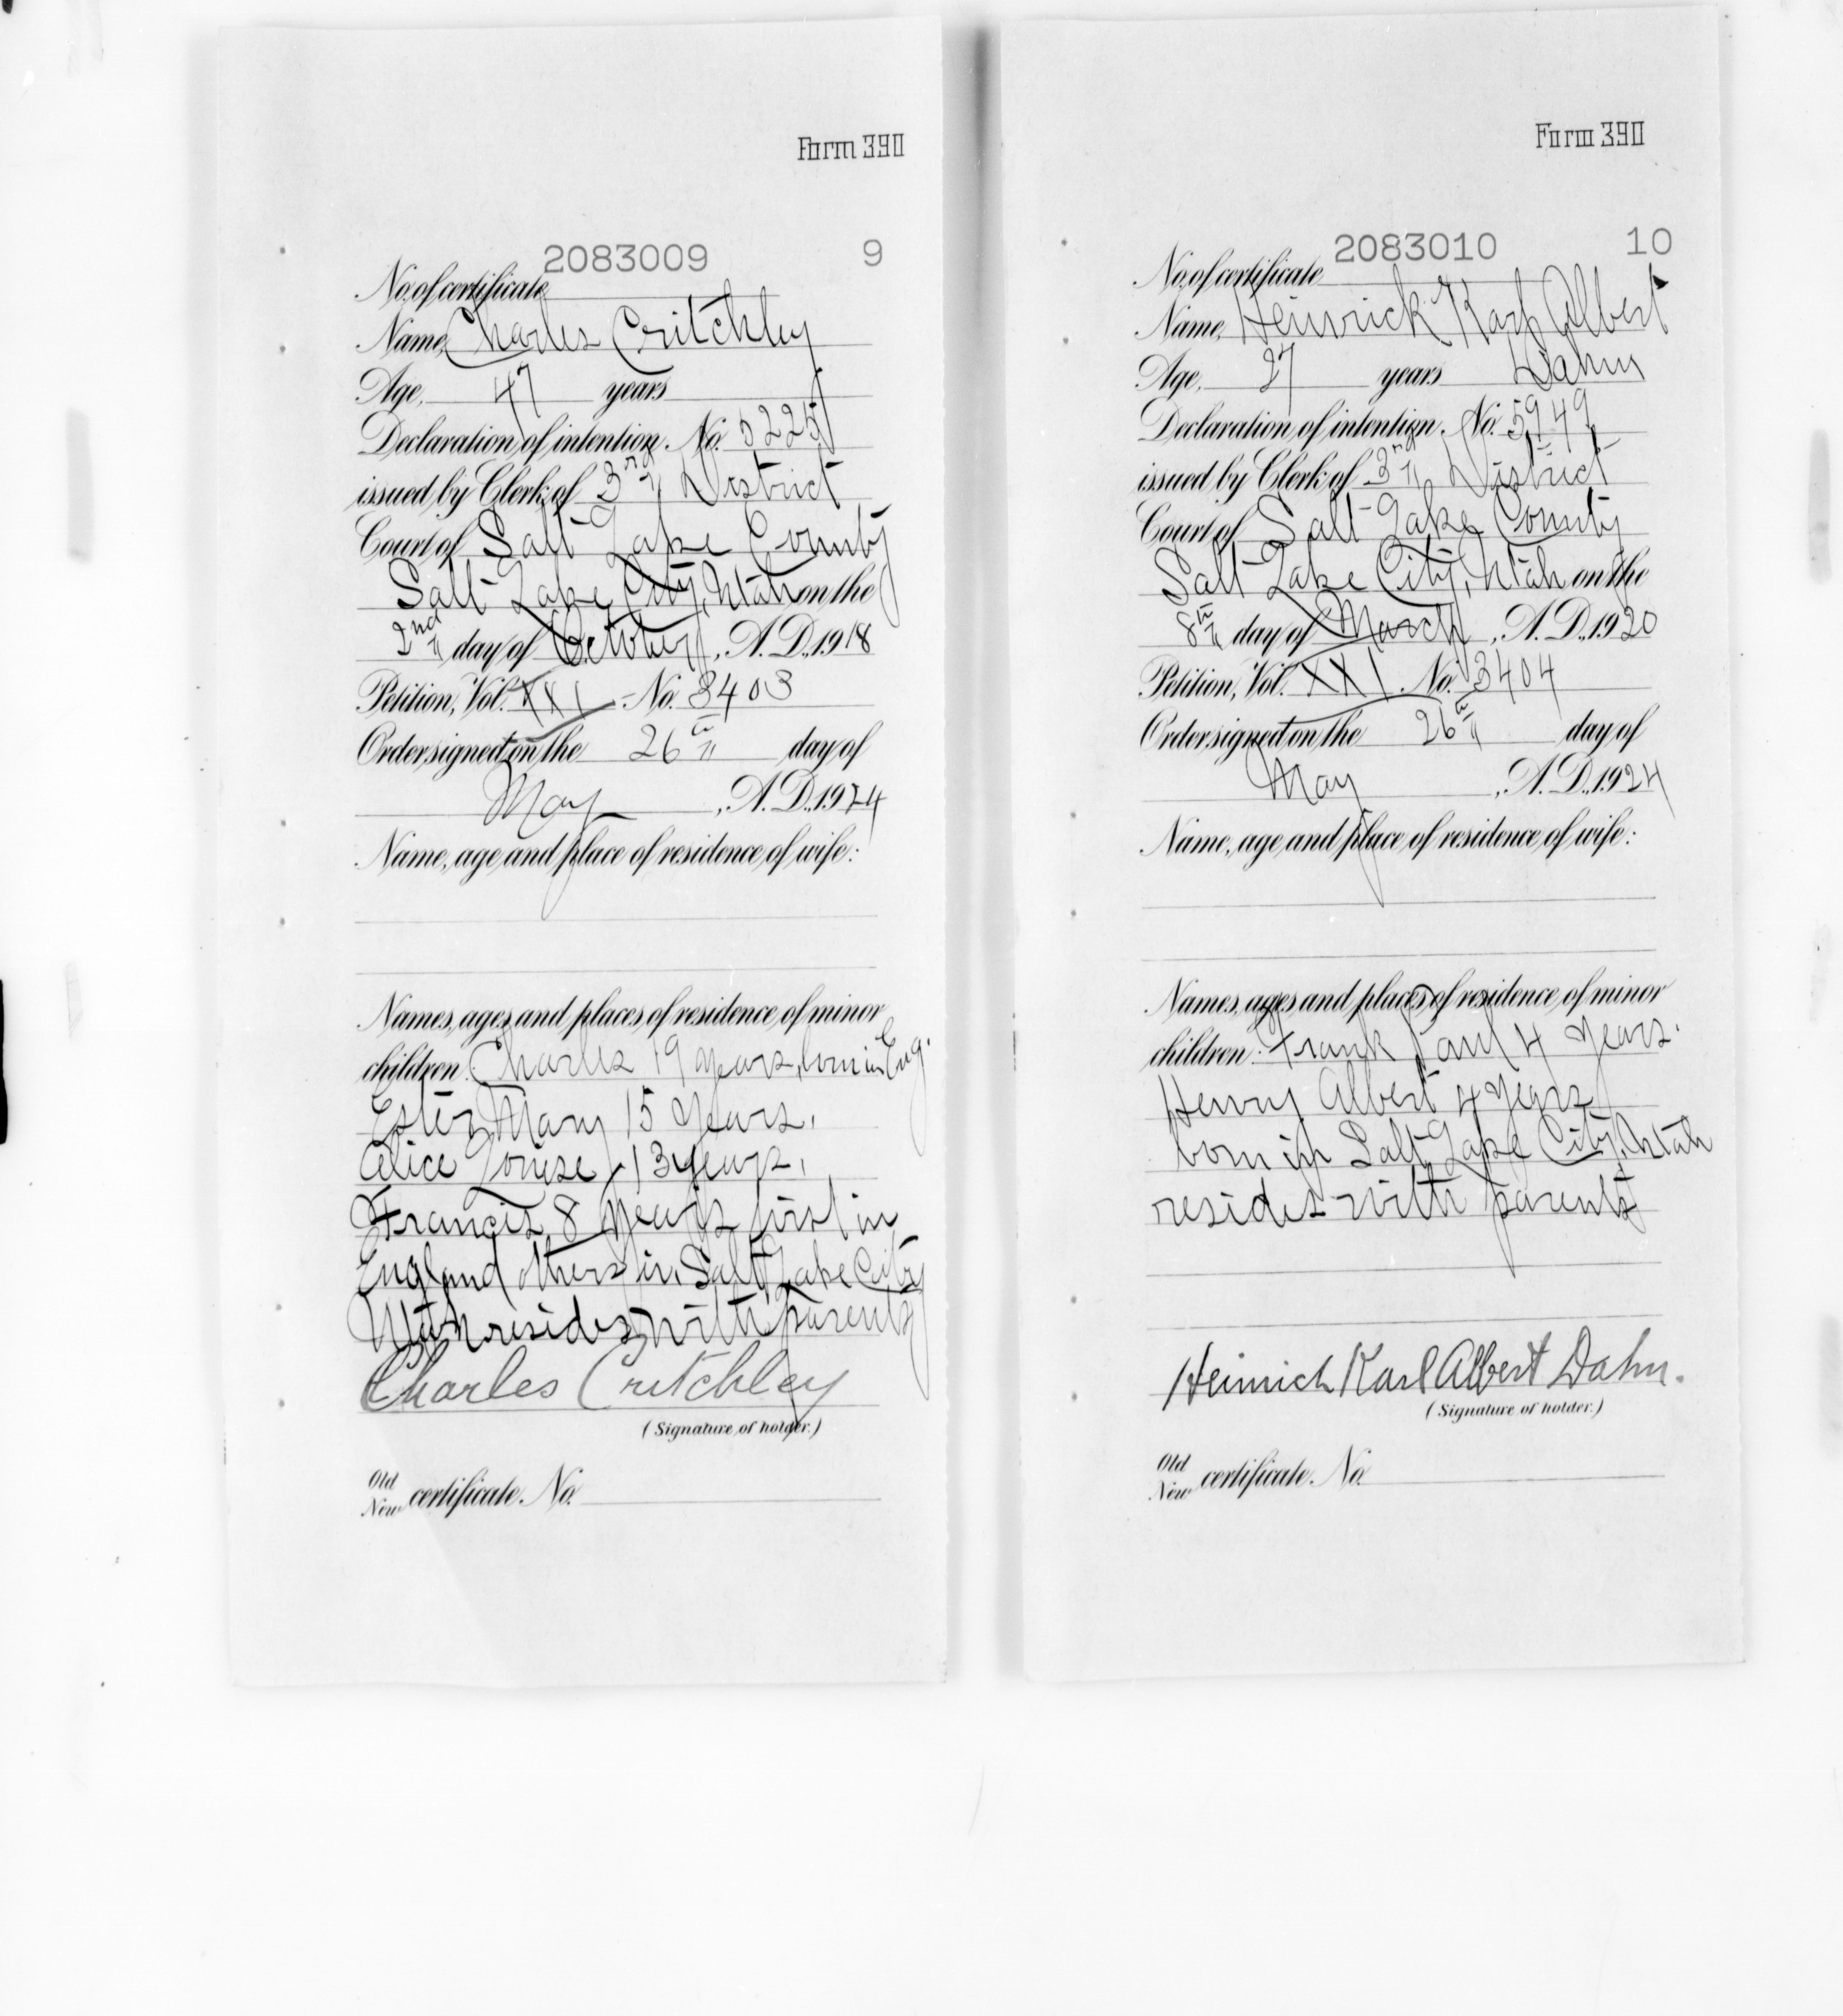 Form 390
2083009 9
No. of certificate
Name, Charles Critchley
Age, 47 years
Declaration of intention No. 5225
issued by Clerk of 3rd District
Court of Salt Lake County
Salt Lake City, Utah on the
2nd day of October, A.D. 1918
Petition, Vol. XXI No. 3403
Order signed on the 26th day of
May, A.D. 1924
Name, age and place of residence of wife:
Names, ages and places of residence of minor
children: Charles 19 years, born in Eng.
Ester Mary 15 years,
Alice Louise, 13 years,
Francis 8 years first in
England others in Salt Lake City
Utah resides with parents
Charles Critchley
(Signature of holder.)
Old
New certificate No.
Form 390
2083010 10
No. of certificate
Name, Heinrick Karl Albert
Age, 27 years Dahn
Declaration of intention No. 5949
issued by Clerk of 3rd District
Court of Salt Lake County
Salt Lake City, Utah on the
8th day of March, A.D. 1920
Petition, Vol. XXI No. 3404
Order signed on the 26th day of
May, A.D. 1924
Name, age and place of residence of wife:
Names, ages and places of residence of minor
children: Frank Paul 4 years.
Henry Albert 4 years
born in Salt Lake City, Utah
resides with parents
Heinrich Karl Albert Dahn.
(Signature of holder.)
Old
New certificate No.